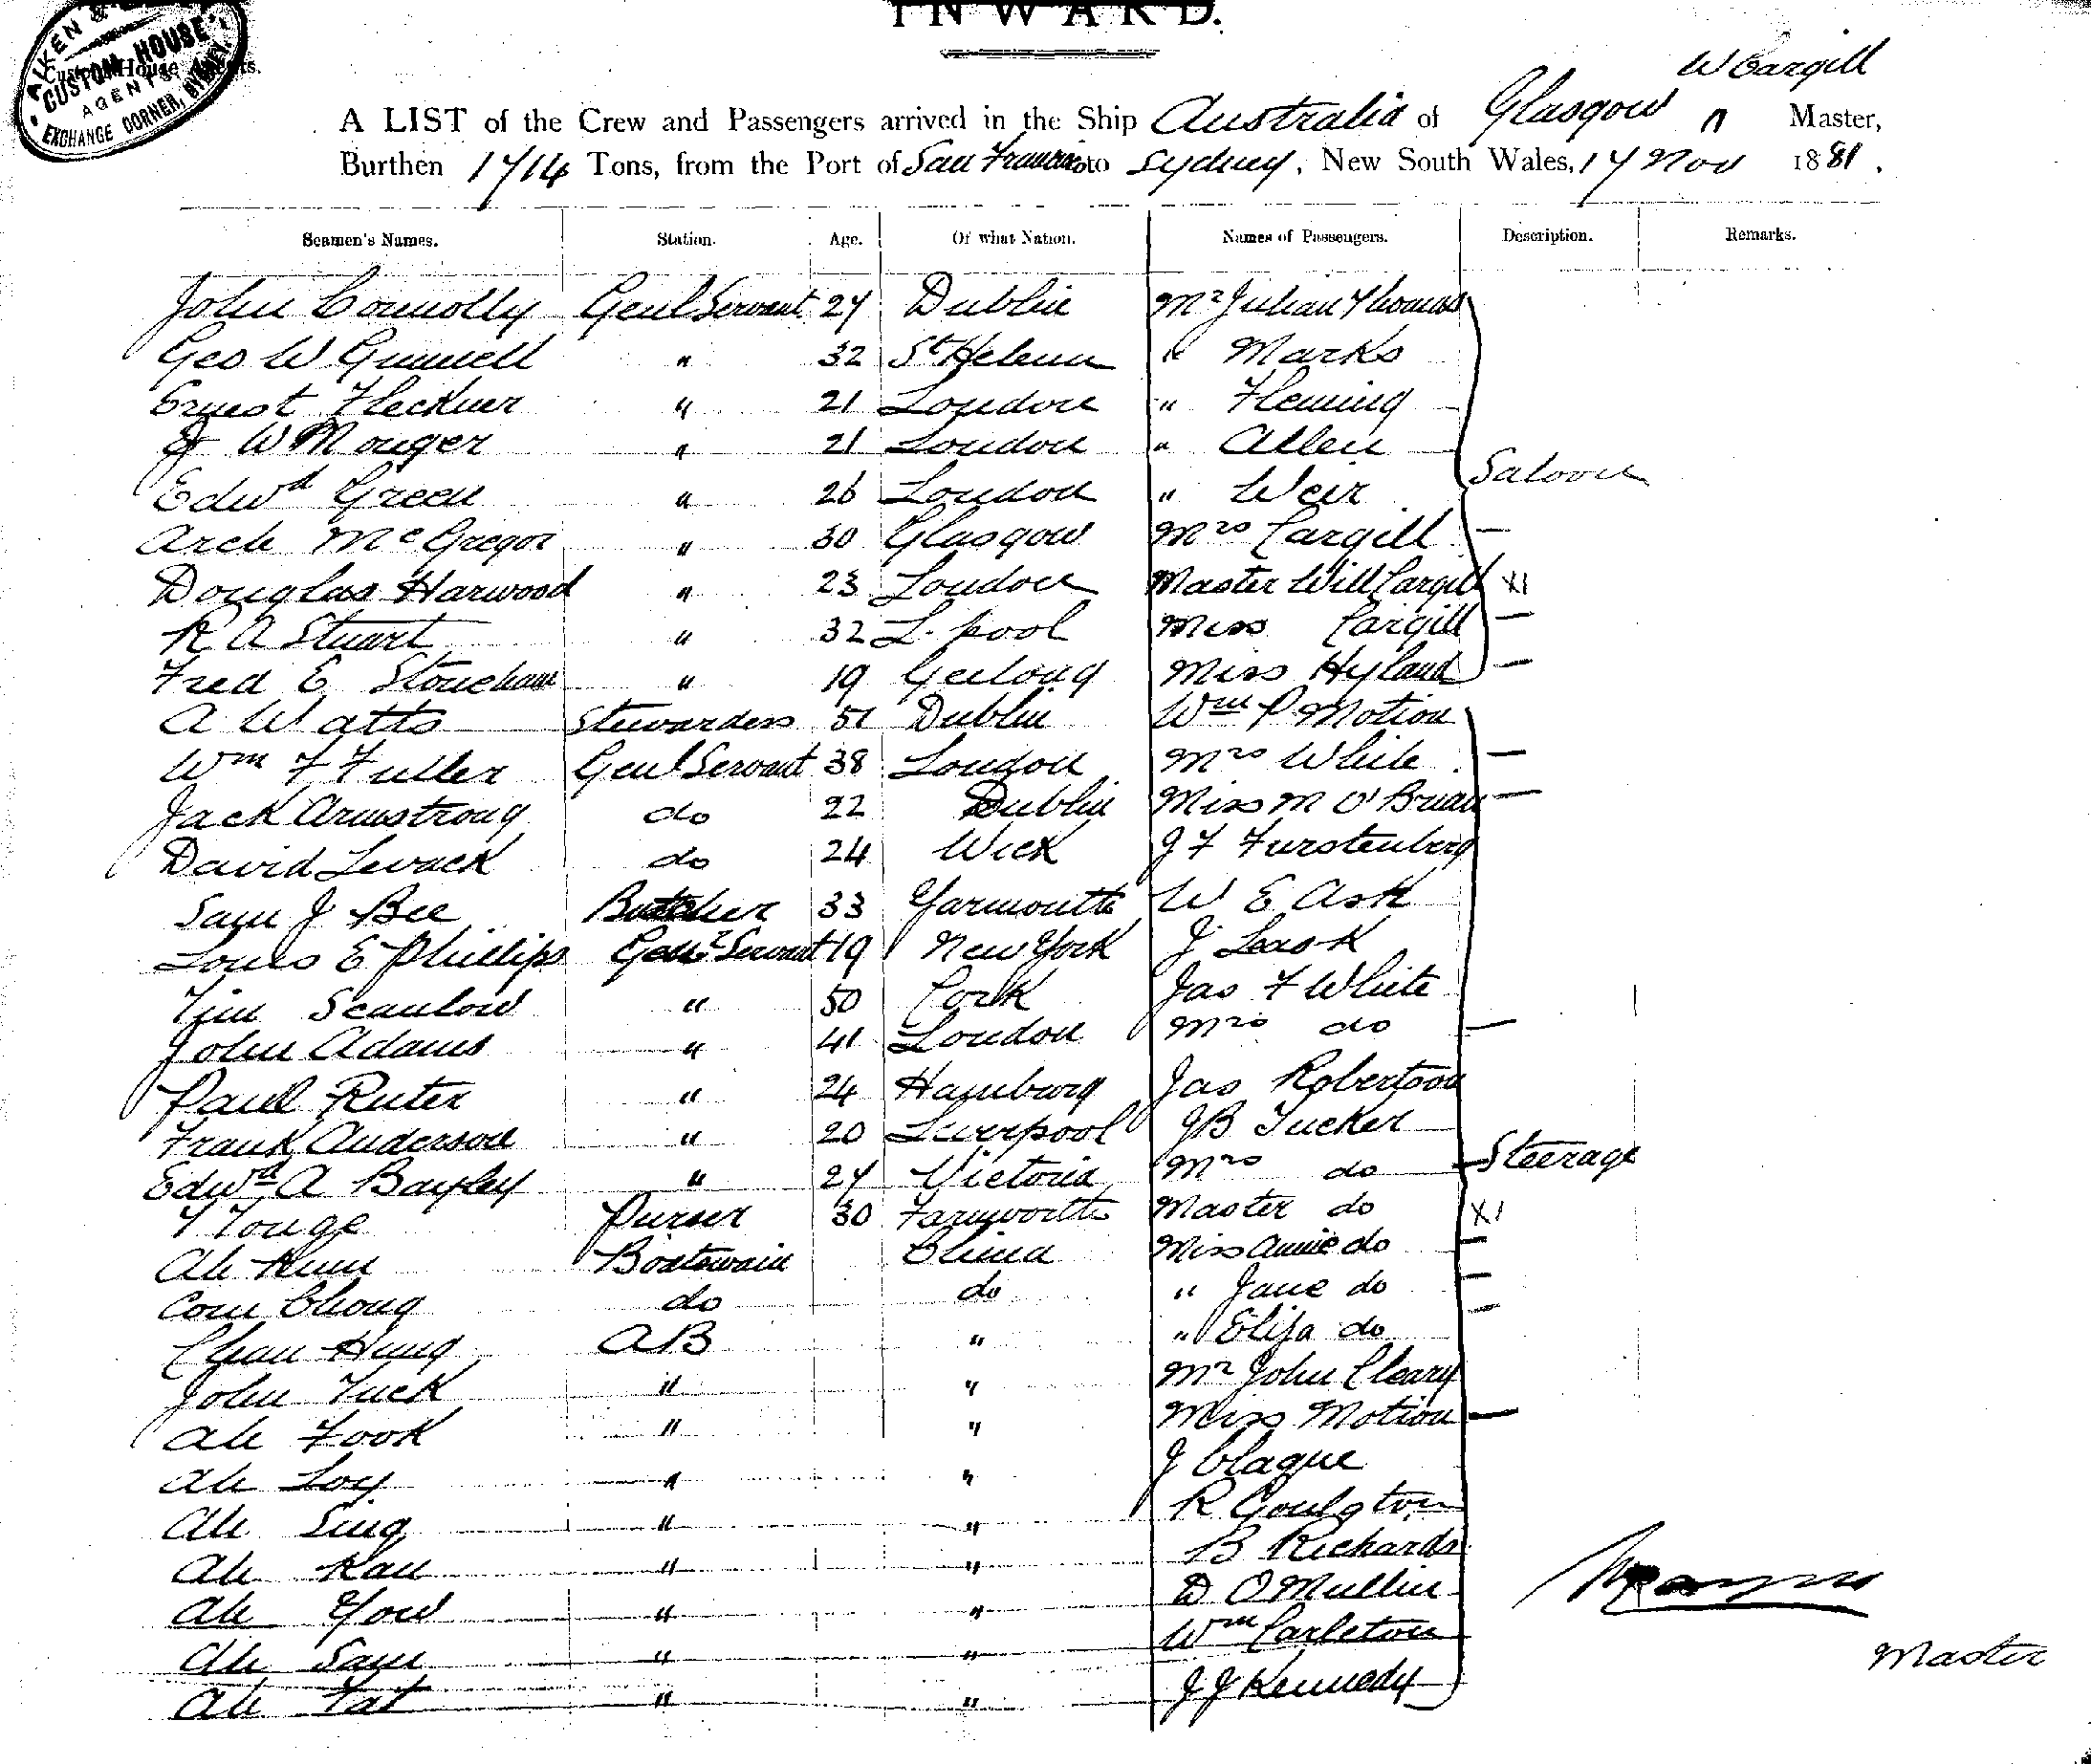 INWARD.
AIKEN &
CUSTOM HOUSE
AGENTS
EXCHANGE CORNER, SYDNEY
Custom House Agents.
W Cargill
A LIST of the Crew and Passengers arrived in the Ship Australia of Glasgow " Master,
Burthen 1714 Tons, from the Port of San Francisco to Sydney, New South Wales, 17 Nov 1881.
Seamen's Names. Station. Age. Of what Nation. Names of Passengers. Description. Remarks.
John Connolly Genl Servant 27 Dublin Mr Julian Thomas
Geo W Gunnell " 32 St Helena " Marks
Ernest Fleckner " 21 London " Fleming
W Monger " 21 London " Allen
Saloon
Edwd Green " 26 London " Weir
Arch McGregor " 30 Glasgow Mrs Cargill —
Douglas Harwood " 23 London Master Will Cargill X1
R A Stuart " 32 L.pool Miss Cargill —
Fred E Stoneham " 19 Geelong Miss Hyland —
A Watts Stewardess 51 Dublin Wm P Motion
Wm F Fuller Genl Servant 38 London Mrs White —
Jack Armstrong do 22 Dublin Miss M O'Brian —
David Levack do 24 Wick J F Furstenberg
Sam J Bee Butcher 33 Yarmouth W E Ask
Louis E Phillips Genl Servant 19 New York J Leask
Tim Scanlow " 50 Cork Jas F White
John Adams " 41 London Mrs do —
Paul Ruter " 24 Hamburg Jas Robertson
Frank Anderson " 20 Liverpool J B Tucker
Edwd A Bayley " 27 Victoria Mrs do Steerage
T Tonge Purser 30 Farnworth Master do X1
Ah Hum Boatswain China Miss Annie do —
Com Chong do do " Jane do —
Chan Hung AB " " Eliza do —
John Tuck " " Mr John Cleary
Ah Fook " " Miss Motion —
Ah Loy " " J Clague
Ah Sing " " R Goulgton
Ah Kan " " B Richards
Ah Yow " " D O Mullin
Ah Sam " " Wm Carleton
Ah Tat " " J J Kennedy
Master